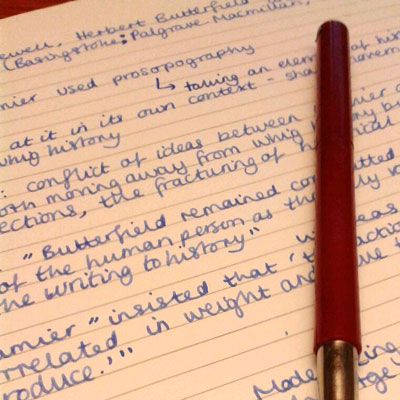 ewell, Herbert Butterfield
(Basingstoke: Palgrave Macmillan,
mier used prosopography
↳ taking an elem of his
at it in its own context - sha movem
whig history
: conflict of ideas between mier
oth moving away from whig history bu
ections, the fracturing of historical
"Butterfield remained committed
of the human person as the only
he writing to history"
amier "insisted that 'the action
rrelated in weight and
roduce.'"
Mode